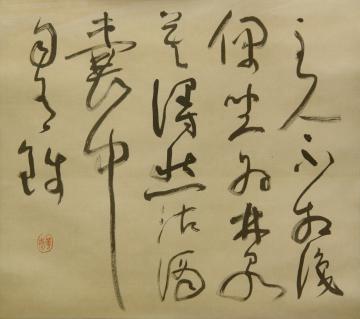 主人不相識
偶坐為林泉
莫得愁沽酒
囊中
自有錢